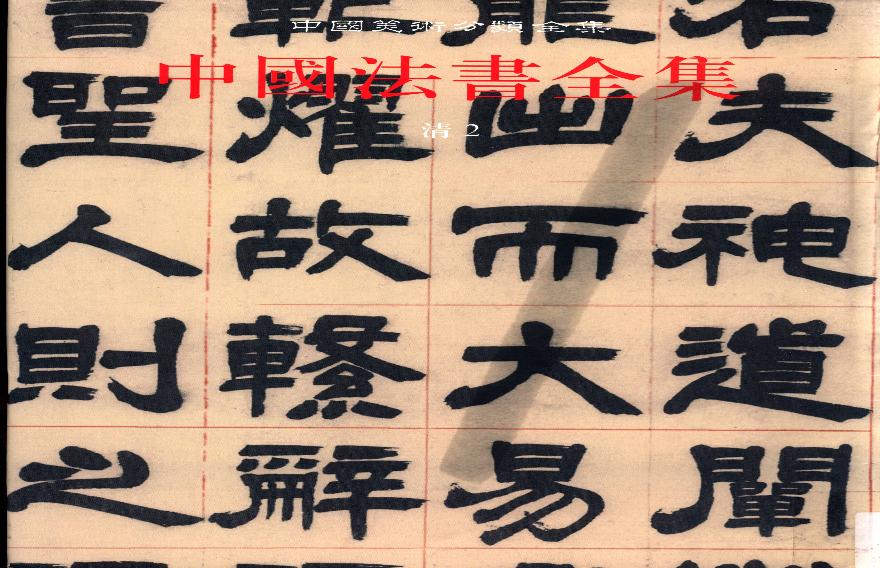 中國美術分類全集
中國法書全集
清 2
夫神道闡
龍出而大易
燿故繫辭
聖人則之